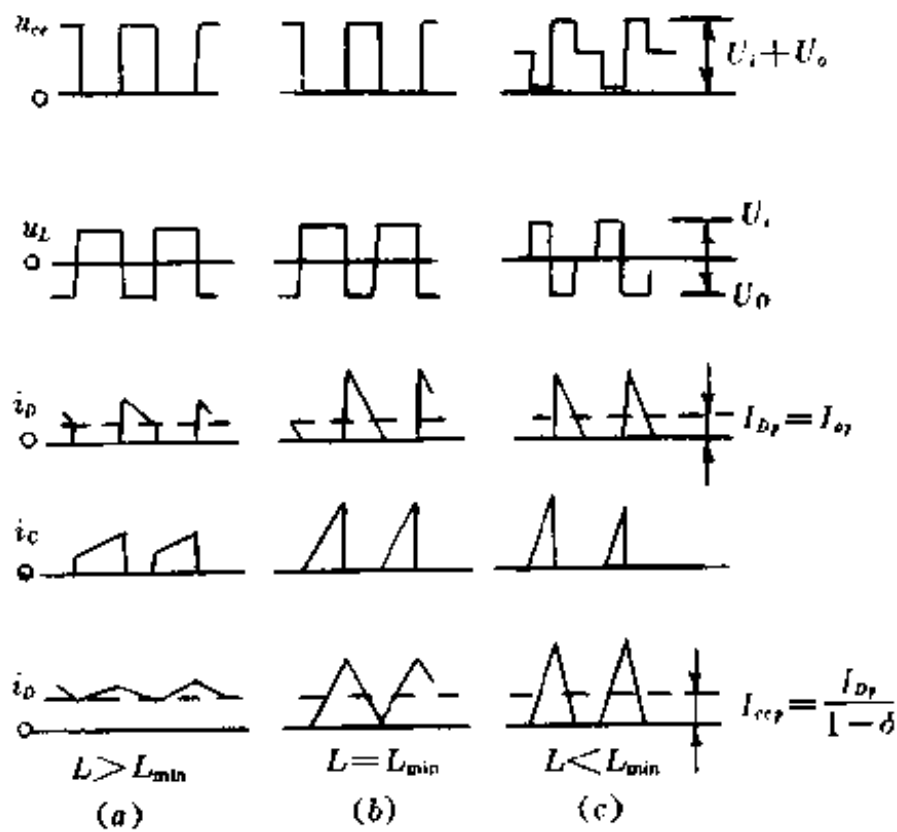 u_ce
O
U_i+U_o
u_L
O
U_i
U_O
i_D
O
I_Dp=I_op
i_C
O
i_D
O
I_ccp=I_Dp/1-δ
L>L_min
L=L_min
L<L_min
(a)
(b)
(c)